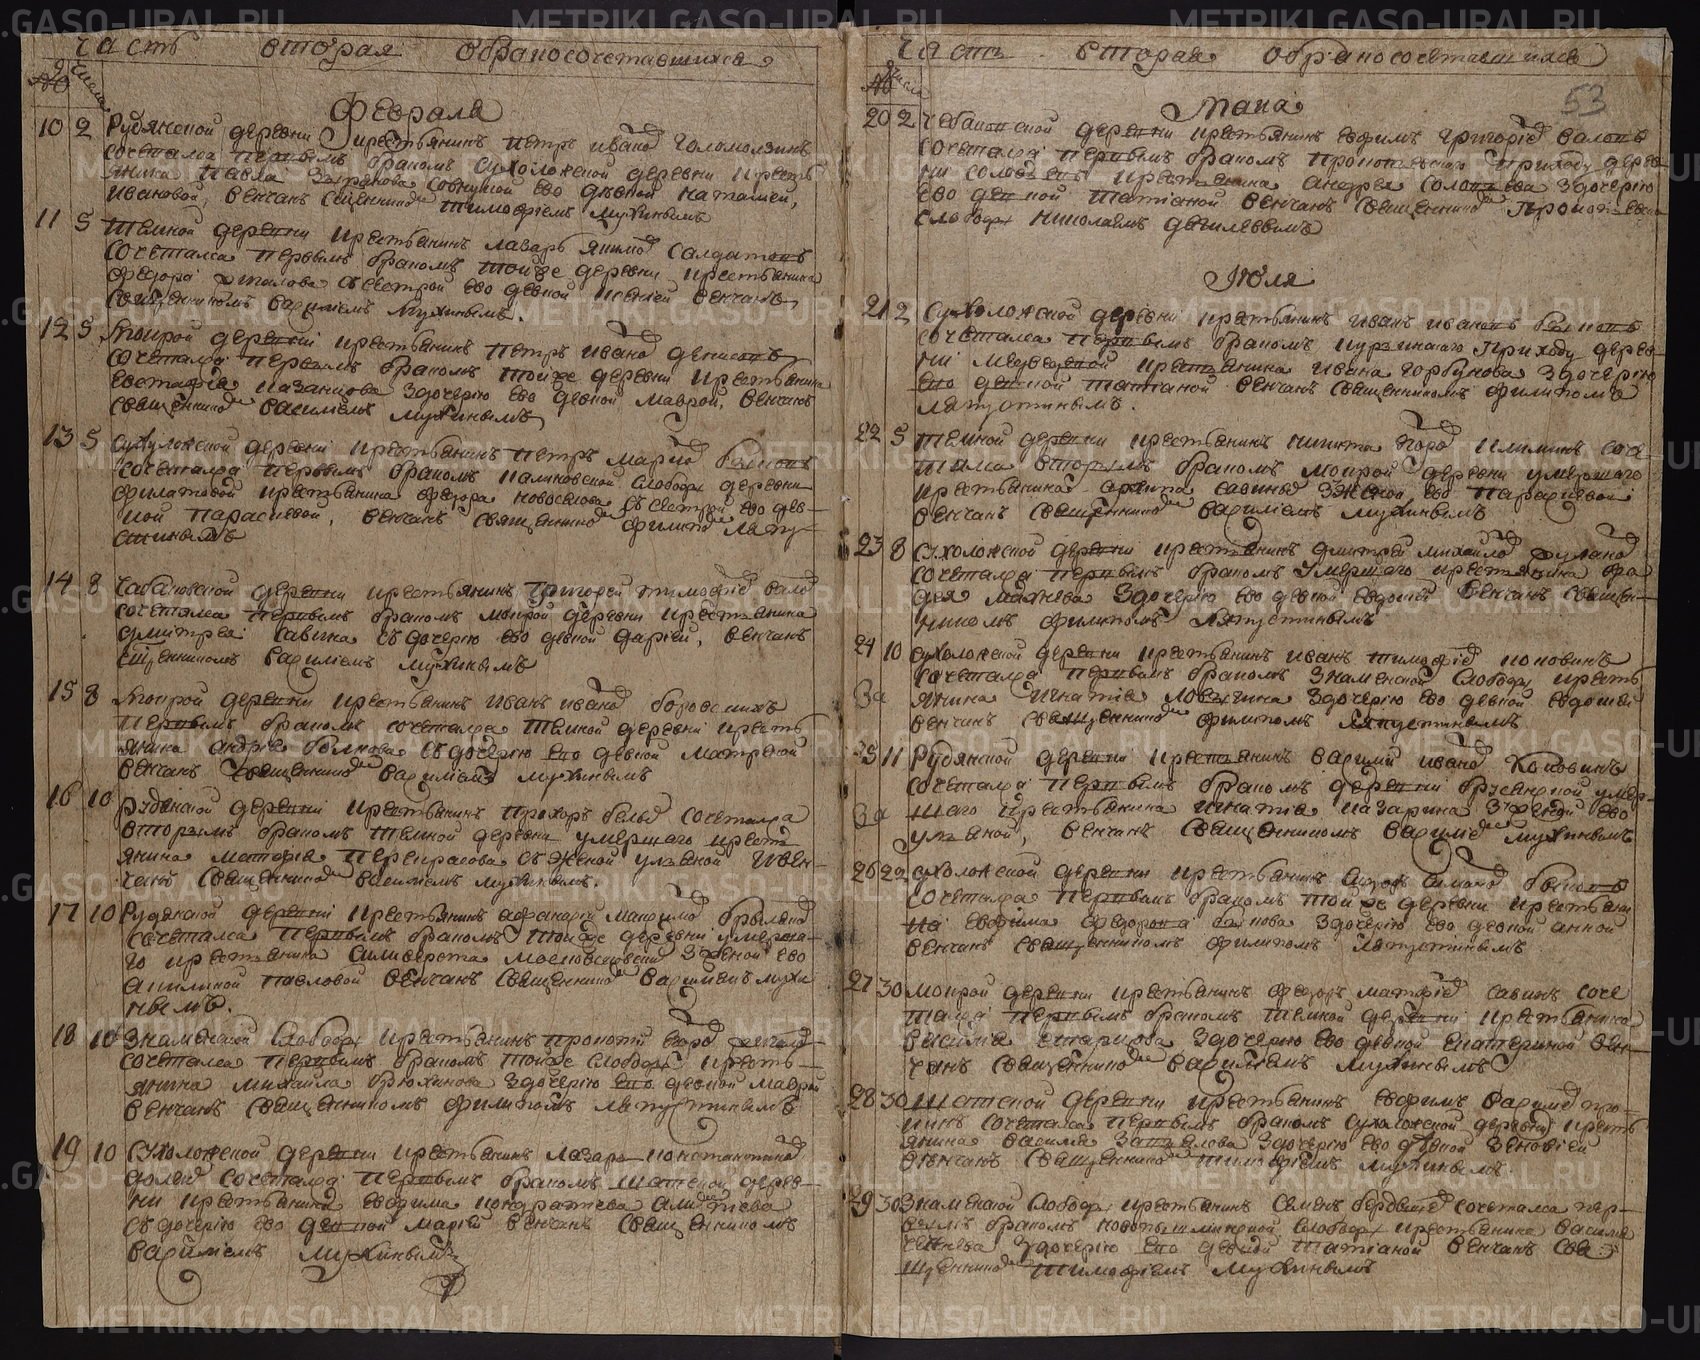 Часть вторая обраносочетавшихся
№ числа
Февраля
10 2 Рудянской деревни крестьянинъ петръ ивано Голомолзинъ
сочетался первымъ бракомъ Сухоложской деревни кресть
янина павла совкупной ево девкой наталией,
ивановой, венчан сщенникомъ тимофиемъ мухинымъ
11 5 Темной деревни крестьянинъ лазарь яким Салдатовъ
сочетался первымъ бракомъ тойже деревни крестьянина
федора хмилова съсестрой ево девкой венчанъ
священникомъ василиемъ мухинымъ.
12 5 Мокрой деревни крестьянинъ петръ ивано денисовъ
сочетался первымъ бракомъ тойже деревни крестьянина
евстафия казанцова здочерию ево девкой маврой, венчанъ
священникомъ василиемъ мухинымъ
13 5 Сухоложской деревни крестьянинъ петръ марко
сочетался первымъ бракомъ калиновской слободы деревни
филатовой крестьянина федора новоселова съсестрой ево дев-
кой параскевой, венчанъ священникомъ филипомъ лапу-
стинымъ
14 8 Чабановской деревни крестьянинъ григорей тимофие вало
сочетался первымъ бракомъ мокрой деревни крестьянина
дмитрея савина съдочерию ево девкой дарией, венчанъ
сщенникомъ василиемъ мухинымъ
15 8 Мокрой деревни крестьянинъ иванъ ивано боровскихъ
первымъ бракомъ сочетался темной деревни кресть
янина андрея быкова съдочерию ево девкой матреной
венчанъ священникомъ василиемъ мухинымъ
16 10 рудянской деревни крестьянинъ прохоръ белые сочетался
вторымъ бракомъ темной деревни умершаго кресть
янина матфея перекрасова съженой ульяной ивен-
чанъ священникомъ василиемъ мухинымъ.
17 10 Рудянской деревни крестьянинъ афанасей максимо брылино
сочетался первымъ бракомъ тойже деревни умерша-
го крестьянина силиверста московскова зженой ево
акилиной павловой венчанъ священникомъ василиемъ мухи
нымъ.
18 10 Знаменской слободы крестьянинъ прокопей
сочетался первымъ бракомъ тойже слободы кресть-
янина михайла брюханова здочерию ево девкой маврой
венчанъ священникомъ филипомъ лапустинымъ
19 10 Сухоложской деревни крестьянинъ лазаръ константино
сочетался первымъ бракомъ шатской дерев-
ни крестьянина ефима кондратиева
съдочерию ево девкой марией венчанъ священникомъ
василиемъ мухинымъ
Часть вторая обраносочетавшихся
№ числа
53
Маиа
20 2 Чебановской деревни крестьянинъ ефимъ григорие валовъ
сочетался первымъ бракомъ прокопьевскаго приходу дерев-
ни соловьевъ крестьянина андрея соловьева здочерию
ево девкой татианой венчанъ священникомъ прокопьевской
слободы николаемъ дягилевымъ
Июля
21 2 Сухоложской деревни крестьянинъ иванъ ивановъ
сочетался первымъ бракомъ курьинскаго приходу дерев-
ни медведевой крестьянина ивана горбунова здочерию
ево девкой татианой венчанъ священникомъ филипомъ
лапустинымъ.
22 5 Темной деревни крестьянинъ никита егоро илиинъ соче
тался вторымъ бракомъ мокрой деревни умершаго
крестьянина архипа савина зженой ево параскевой
венчанъ священникомъ василиемъ мухинымъ
23 8 Сухоложской деревни крестьянинъ дмитрей михайло рудано
сочетался первымъ бракомъ умершаго крестьянина фа
дея махнева здочерию ево девкой евдокией венчанъ священ-
никомъ филипомъ лапустинымъ
24 10 сухоложской деревни крестьянинъ иванъ тимофие коковинъ
сочетался первымъ бракомъ знаменской слободы кресть
за янина игнатия ловягина здочерию ево девкой евдокией
венчанъ священникомъ филипомъ лапустинымъ
25 11 Рудянской деревни крестьянинъ василий ивано коковинъ
сочетался первымъ бракомъ деревни брусянской умер-
за шаго крестьянина игнатия назарина зженой ево
ульяной, венчанъ священникомъ василиемъ мухинымъ
26 22 Сухоложской деревни крестьянинъ симано быковъ
сочетался первымъ бракомъ тойже деревни крестьяни
на ефима федорова быкова здочерию ево девкой анной
венчанъ священникомъ филипомъ лапустинымъ
27 30 Мокрой деревни крестьянинъ федоръ матфие савинъ соче
тался первымъ бракомъ темной деревни крестьянина
василия старкова здочерию ево девкой екатериной вен-
чанъ священникомъ василиемъ мухинымъ
28 30 Шатской деревни крестьянинъ ефимъ василие про-
кинъ сочетался первымъ бракомъ сухоложской деревни кресть
янина василия завьялова здочерию ево девкой зеновией
венчанъ священникомъ тимофиемъ мухинымъ
29 30 Знаменской слободы крестьянинъ семенъ бердыше сочетался пер-
вымъ бракомъ новопышминской слободы крестьянина василия
чернева здочерию ево девкой татианой венчанъ свя-
щенникомъ тимофиемъ мухинымъ